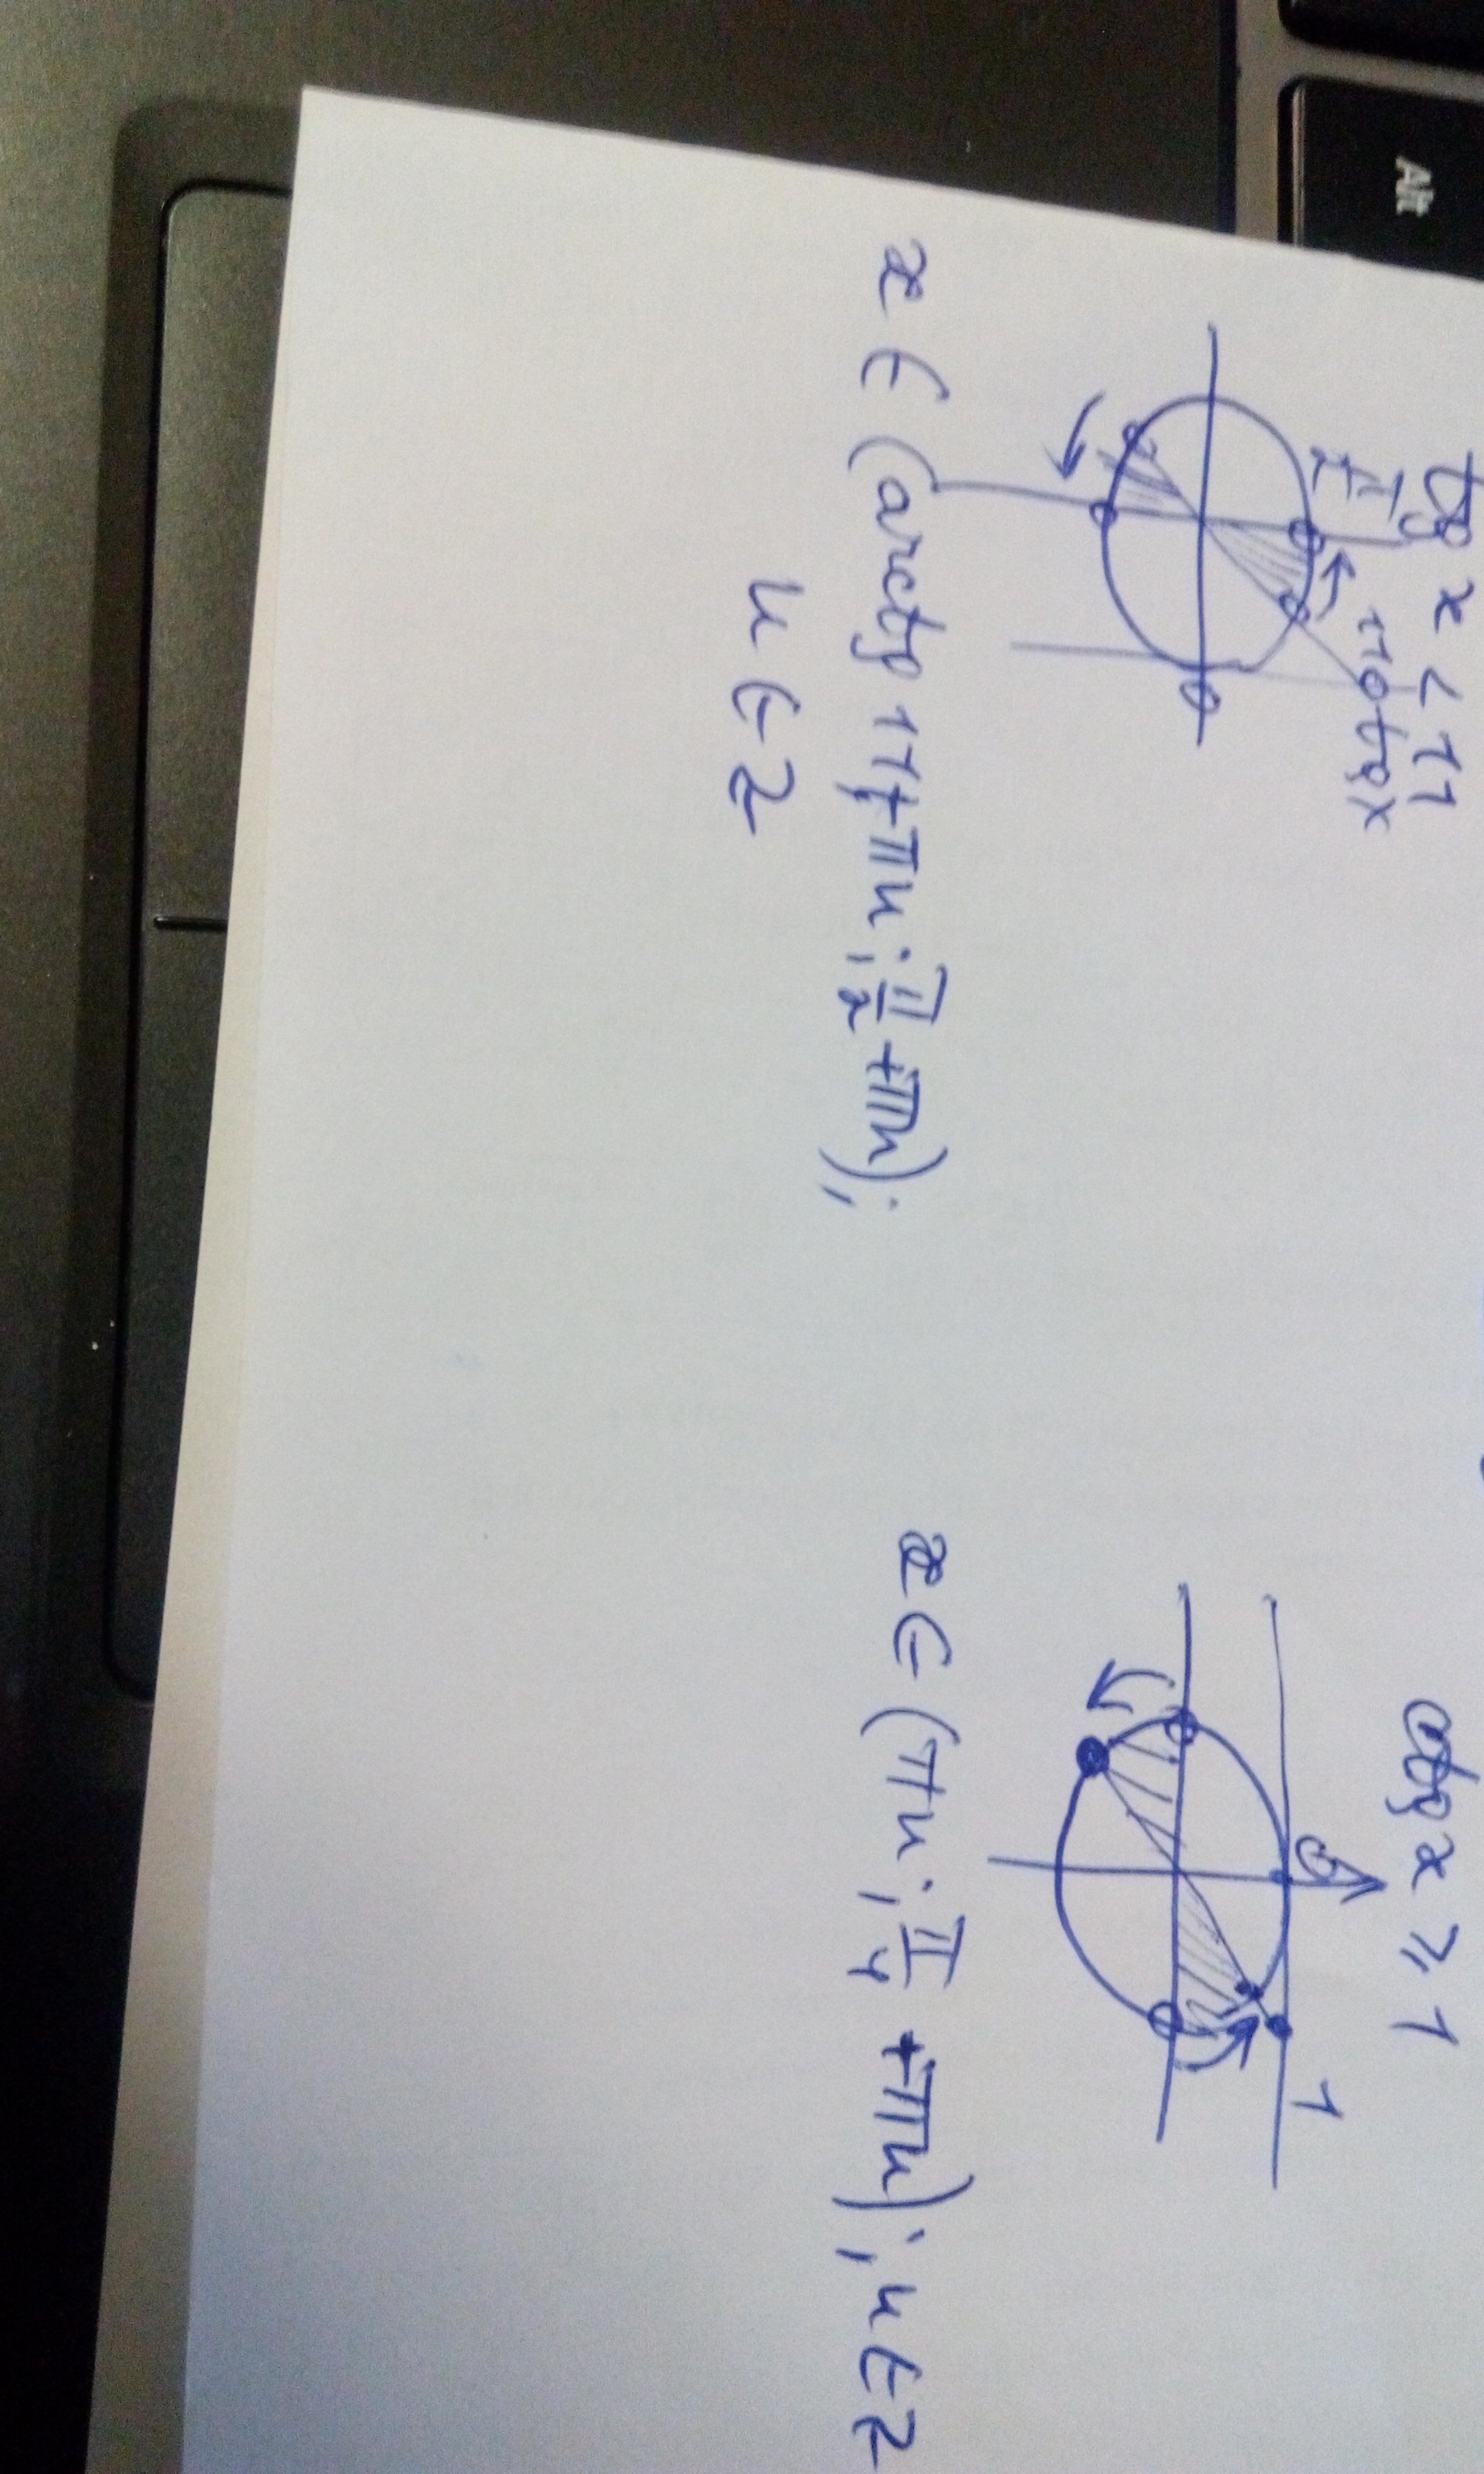 Alt
tg x < 11
π/2
11 tg x
0
x ∈ (arctg 11 + πn; π/2 + πn);
n ∈ Z
ctg x ≥ 1
0
1
x ∈ (πn; π/4 + πn]; n ∈ Z